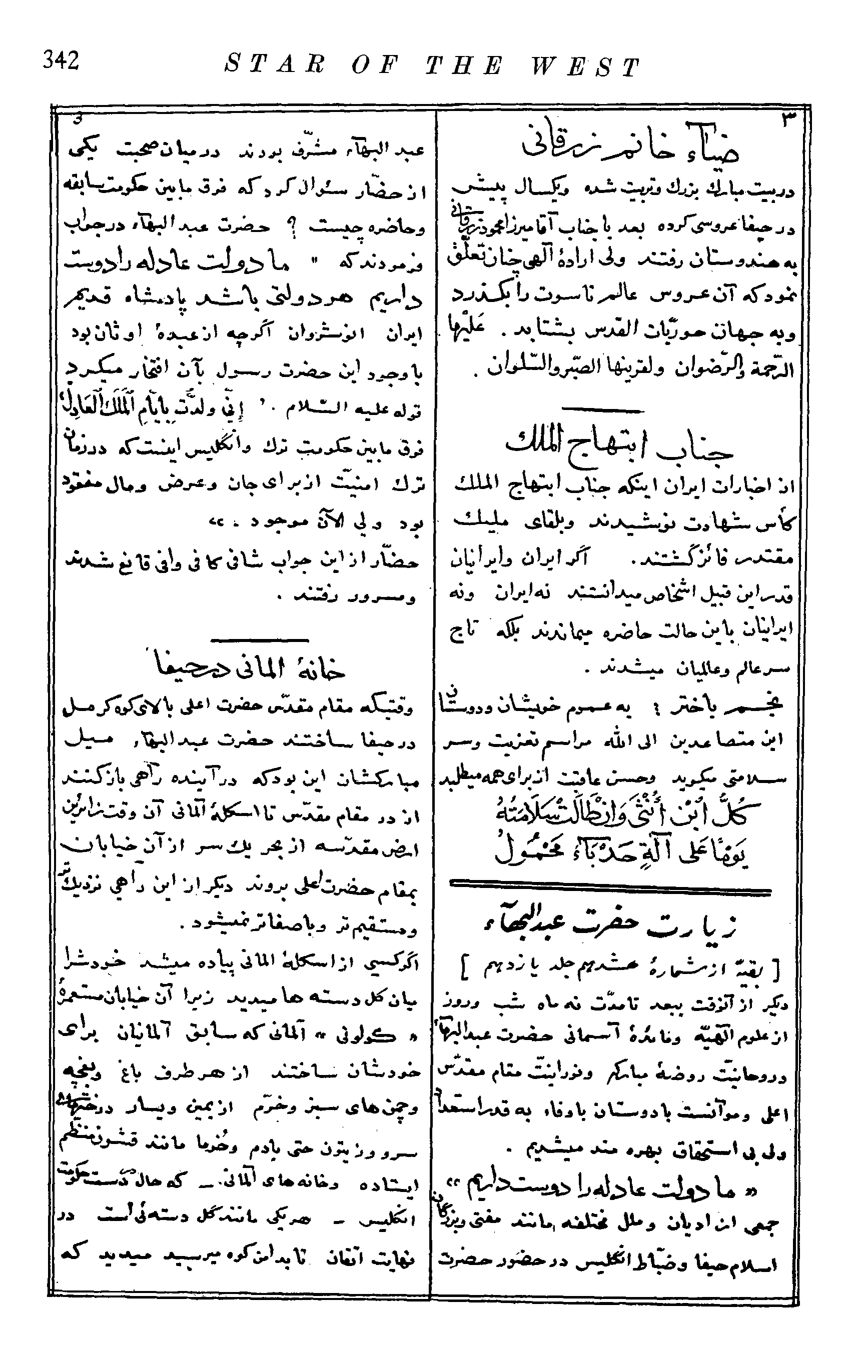 342 STAR OF THE WEST
۳
ضیاء خانم زرقانی
در بیت مبارك بزرك و تربیت شده و یکسال پیش
در حیفا عروسی کرده بعد با جناب آقا میرزا محمود زرقانی
به هندوستان رفتند ولی ارادهٔ آلهی چنان تعلّق
نمود که آن عروس عالم ناسوت را بگذرد
وبه جهان حوریّات القدس بشتابد . عَلَیْها
الرّحمة والرّضوان ولقرینها الصّبر والسّلوان .
جناب ابتهاج الملك
از اخبارات ایران اینکه جناب ابتهاج الملك
کأس شهادت نوشیدند وبلقای ملیك
مقتدر فائز گشتند. اگر ایران وایرانیان
قدر این قبیل اشخاص میدانستند نه ایران ونه
ایرانیان باین حالت حاضره میماندند بلکه تاج
سر عالم وعالمیان میشدند .
نجم باختر : به عموم خویشان ودوستان
این متصاعدین الی الله مراسم تعزیت وسر
سلامتی میگوید وحسن عاقبت از برای همه میطلبد
کُلُّ ابْنِ أُنْثَی وَاِنْ طَالَتْ سَلَامَتُهُ
یَوْمًا عَلی آلَةٍ حَدْبَآءَ مَحْمُولُ
زیارت حضرت عبدالبهآء
[ بقیّه از شمارهٔ هشدهم جلد یازدهم ]
دیگر از آنوقت ببعد تا مدّت نه ماه شب وروز
از علوم آلهیّه ومائدهٔ آسمانی حضرت عبدالبهآء
وروحانیّت روضهٔ مبارکه ونورانیّت مقام مقدّس
اعلی وموآنست با دوستان باوفاء به قدر استعداد
ولی بی استحقاق بهره مند میشدیم .
« ما دولت عادله را دوست داریم »
جمعی از ادیان وملل مختلفه مانند مفتی وبزرگان
اسلام حیفا وضبّاط انگلیس در حضور حضرت
عبد البهآء مشرّف بودند در میان صحبت یکی
از حضّار سئوال کرد که فرق مابین حکومت سابقه
وحاضره چیست ؟ حضرت عبد البهآء در جواب
فرمودند که " ما دولت عادله را دوست
داریم هر دولتی باشد پادشاه قدیم
ایران انوشیروان اگرچه از عبدهٔ اوثان بود
با وجود این حضرت رسول بآن افتخار میکرد
قوله علیه السّلام . " إِنّی ولدْتُ بِأیّامِ الْمَلِكِ الْعَادِلِ
فرق مابین حکومت ترك وانگلیس اینست که در زمان
ترك امنیّت از برای جان وعرض ومال مفقود
بود ولی الآن موجود . »
حضّار از این جواب شافی کافی وافی قانع شدند
ومسرور رفتند .
خانهٔ المانی در حیفا
وقتیکه مقام مقدّس حضرت اعلی بالای کوه کرمل
در حیفا ساختند حضرت عبد البهآء میل
مبارکشان این بود که در آینده راهی باز کنند
از در مقام مقدّس تا اسکلهٔ آلمانی آن وقت زائرین
ارض مقدّسه از بحر یك سر از آن خیابان
بمقام حضرت اعلی بروند دیگر از این راهی نزدیك تر
ومستقیم تر وباصفاتر نمیشود .
اگر کسی از اسکلهٔ المانی پیاده میشد خود شرا
میان کل دسته ها میدید زیرا آن خیابان مستعمرهٔ
« کولونی » آلمانی که سابق آلمانیان برای
خودشان ساختند از هر طرف باغ وبغچه
وچمن های سبز وخرّم از یمین ویسار درختهای
سرو وزیتون حتی بادم وخُرما مانند قشون منتظم
ایستاده وخانه های آلمانی ــ که حال در دست حکومت
انگلیس ــ هر یکی مانند گل دسته ئی است در
نهایت اتقان تا بدامن کوه میرسید میدید که